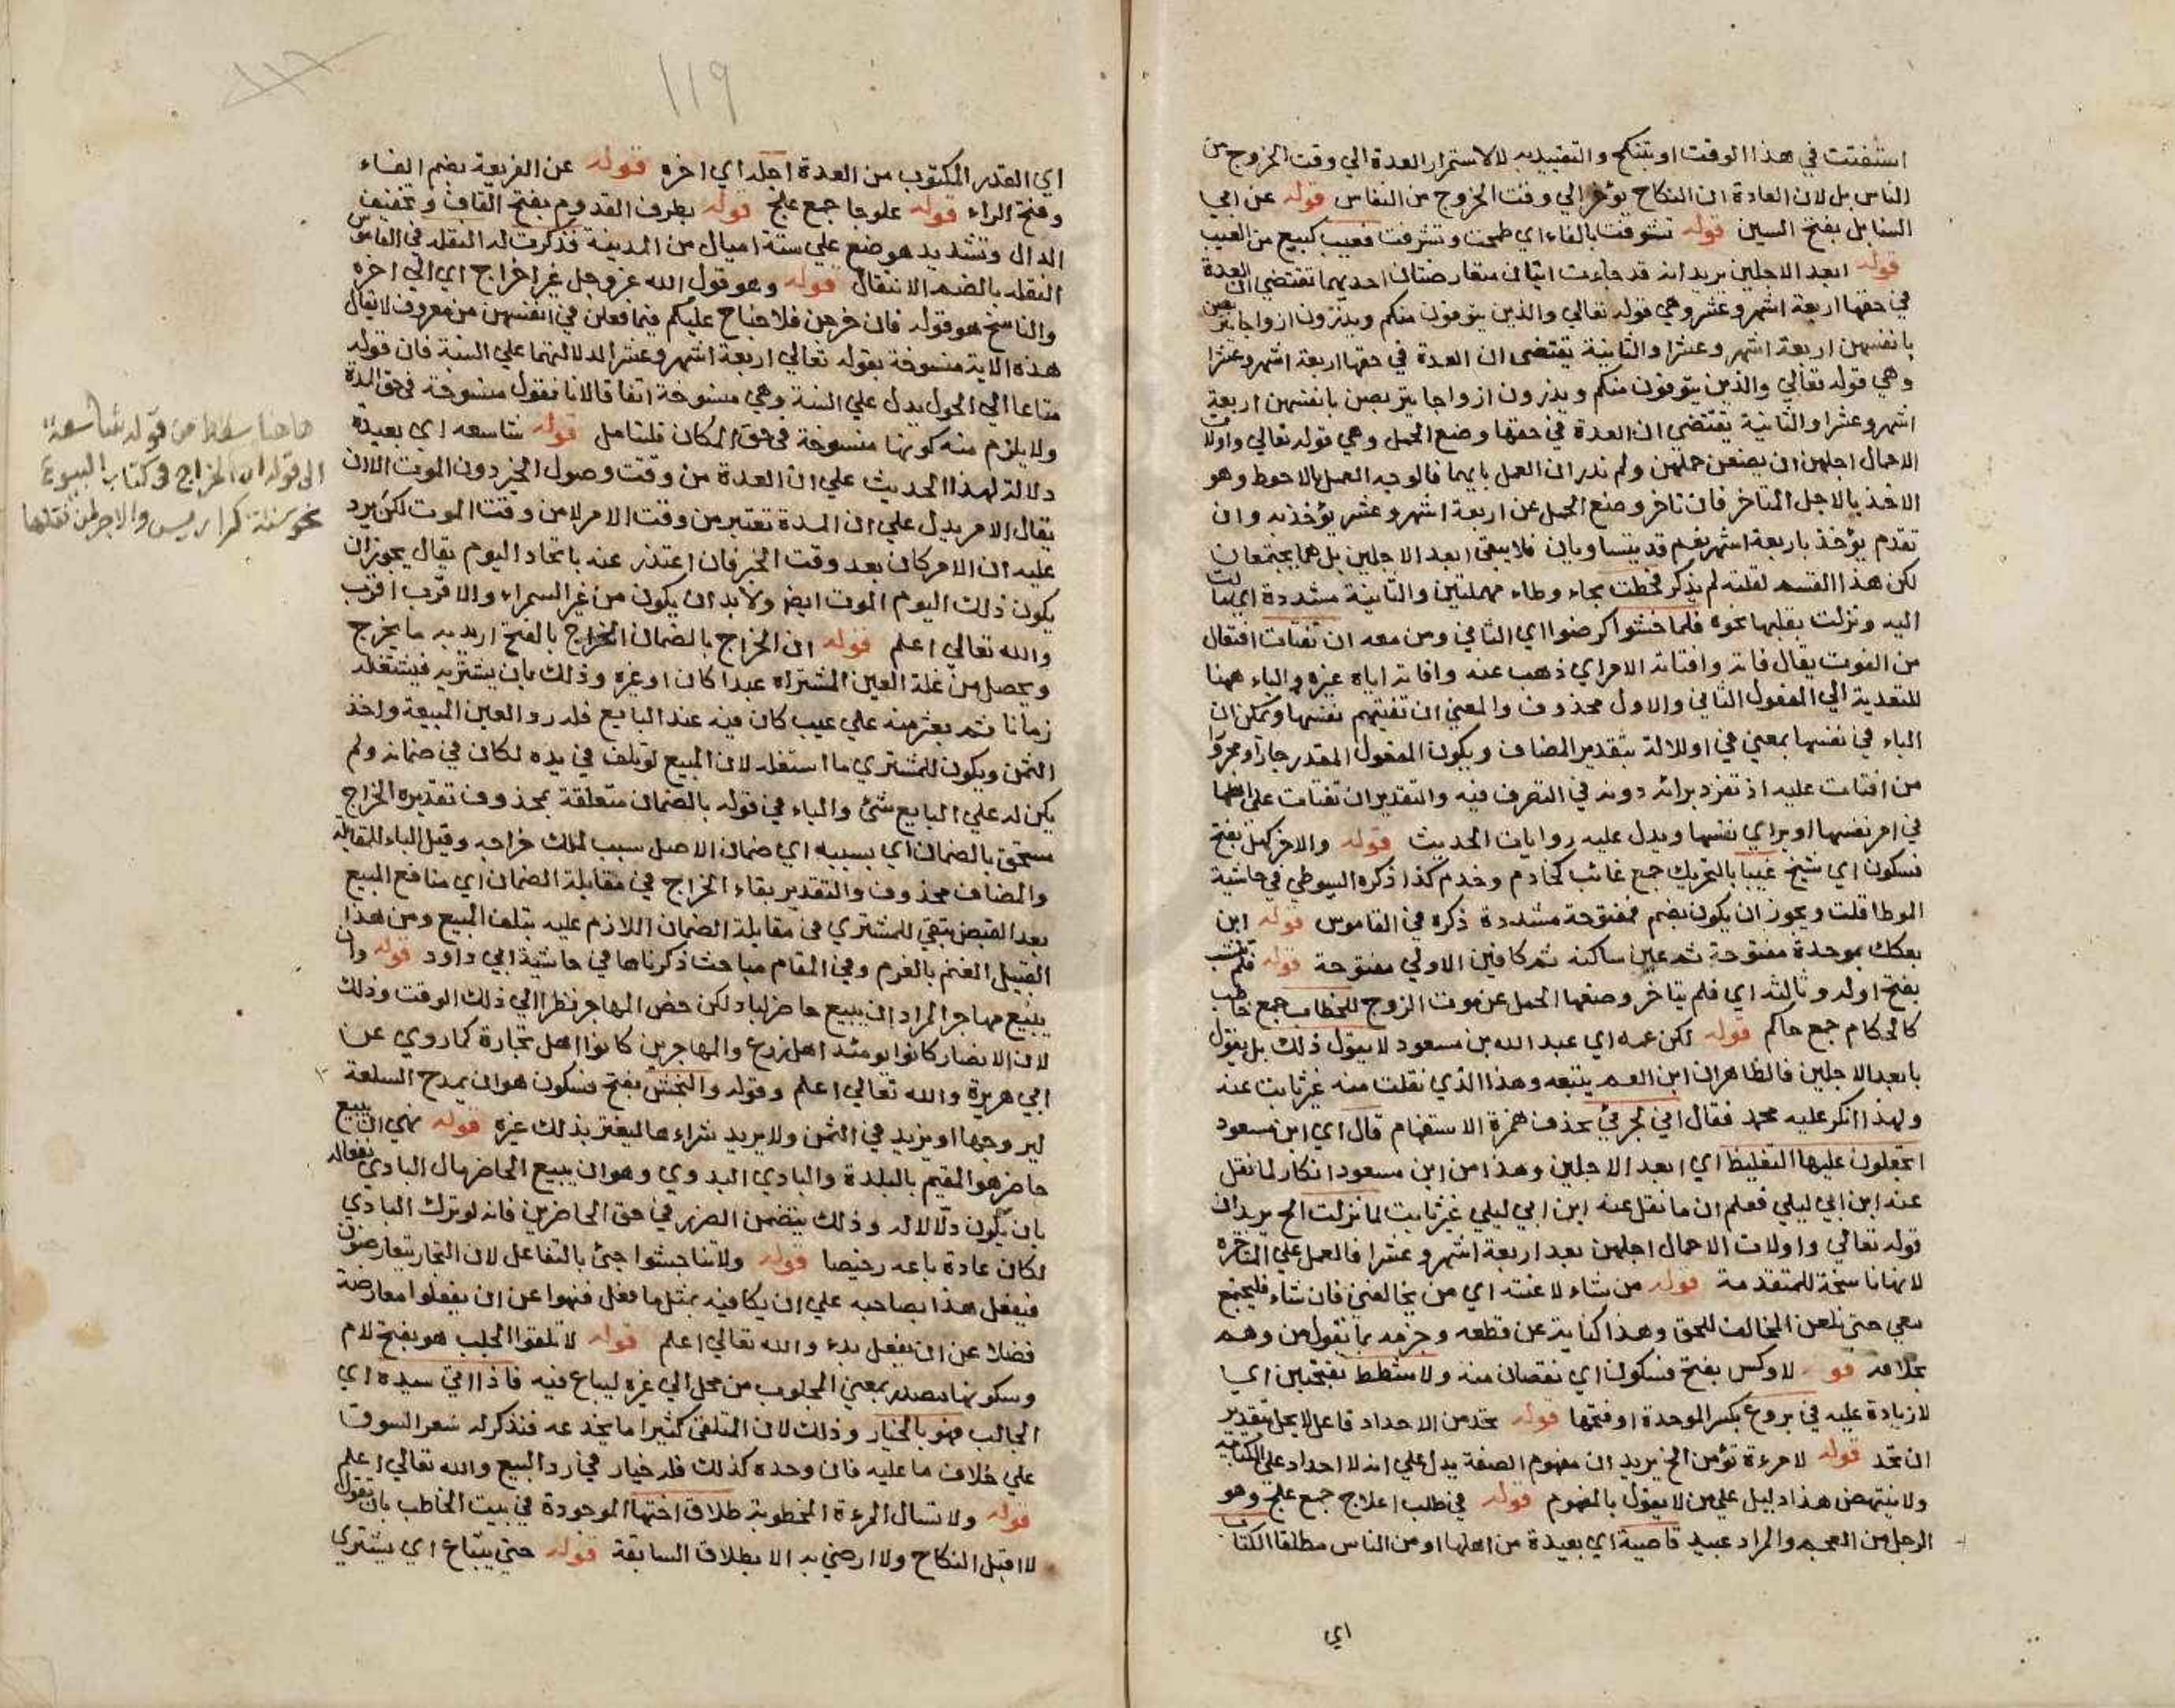 استفتت في هذا الوقت او تنكح والتقييد به لا لاستمرار العدة الي وقت الخروج من
الناس بل لان العادة ان النكاح يؤخر الي وقت الخروج من النفاس قوله عن ابي
السنابل بفتح السين قوله تشوفت بالفاء اي طمحت وتشرفت فعيب كبيع من العيب
قوله ابعد الاجلين يريد انه قد جاءت ايتان متعارضتان احديهما تقتضي ان العدة
في حقها اربعة اشهر وعشر وهي قوله تعالي والذين يتوفون منكم ويذرون ازواجا يتربصن
بانفسهن اربعة اشهر وعشرا والثانية يقتضي ان العدة في حقها اربعة اشهر وعشرا
وهي قوله تعالي والذين يتوفون منكم ويذرون ازواجا يتربصن بانفسهن اربعة
اشهر وعشرا والثانية يقتضي ان العدة في حقها وضع الحمل وهي قوله تعالي واولات
الاحمال اجلهن ان يضعن حملهن ولم ندر ان العمل بايهما فالوجه العمل بالاحوط وهو
الاخذ بالاجل المتاخر فان تاخر وضع الحمل عن اربعة اشهر وعشر يؤخذ به وان
تقدم يؤخذ باربعة اشهر نعم قد يتساويان فلا يبقي ابعد الاجلين بل هما يجتمعان
لكن هذا القسم لقلته لم يذكر فحطت بحاء وطاء مهملتين والثانية مشددة اي مالت
اليه ونزلت بقلبها نحوه فلما خشوا كرضوا اي الثاني ومن معه ان تفتات افتعال
من الفوت يقال فاته وافتاته الامر اي ذهب عنه وافاته اياه غيره والباء ههنا
للتعدية الي المفعول الثاني والاول محذوف والمعني ان تفتيهم نفسها ويمكن ان
الباء في نفسها بمعني في او للالة بتقدير المضاف ويكون المفعول المقدر جارا ومجرورا
من افتات عليه اذ تفرد برائه دونه في التصرف فيه والتقدير ان تفتات علي اهلها
في امر نفسها او براي نفسها ويدل عليه روايات الحديث قوله والاخر كهل بفتح
فسكون اي شيخ غيبا بالتحريك جمع غائب كخادم وخدم كذا ذكره السيوطي في حاشية
الموطا قلت ويجوز ان يكون بضم ففتوحة مشددة ذكره في القاموس قوله ابن
بعكك بموحدة مفتوحة ثم عين ساكنة ثم كافين الاولي مفتوحة قوله فلم تنشب
بفتح اوله وثالثه اي فلم يتاخر وضعها الحمل عن موت الزوج للخطاب جمع خاطب
كالحكام جمع حاكم قوله لكن عمه اي عبد الله بن مسعود لا يقول ذلك بل يقول
بابعد الاجلين فالظاهر ان ابن العم يتبعه وهذا الذي نقلت منه غير ثابت عنه
ولهذا انكر عليه محمد فقال اني لجرئ بحذف همزة الاستفهام قال اي ابن مسعود
اتجعلون عليها التغليظ اي ابعد الاجلين وهذا من ابن مسعود انكار لما نقل
عنه ابن ابي ليلي فعلم ان ما نقل عنه ابن ابي ليلي غير ثابت لما نزلت الخ يريد ان
قوله تعالي واولات الاحمال اجلهن بعد اربعة اشهر وعشرا فالعمل علي المتاخرة
لانها ناسخة للمتقدمة قوله من شاء لاعنته اي من يخالفني فان شاء فليجتمع
معي حتي نلعن المخالف للحق وهذا كناية عن قطعه وجزمه بما يقول من وهم
بخلافه قوله لا وكس بفتح فسكون اي نقصان منه ولا شطط بفتحتين اي
لا زيادة عليه في بروع بكسر الموحدة او فتحها قوله تحد من الاحداد فاعل لا يحل بتقدير
ان تحد قوله لامرءة تؤمن الخ يريد ان مفهوم الصفة يدل علي انه لا احداد علي الكتابية
ولا ينتهض هذا دليل علي من لا يقول بالمفهوم قوله في طلب اعلاج جمع علج وهو
الرجل من العجم والمراد عبيد قاصية اي بعيدة من اهلها او من الناس مطلقا الكتاب
اي
١١٩
اي القدر المكتوب من العدة اجله اي اخره قوله عن الفريعة بضم الفاء
وفتح الراء قوله علوجا جمع علج قوله بطرف القدوم بفتح القاف وتخفيف
الدال وتشديد هو ضع علي ستة اميال من المدينة فذكرت له النقله في القاموس
النقله بالضم الانتقال قوله وهو قول الله عز وجل غير اخراج اي الي اخره
والناسخ هو قوله فان خرجن فلا جناح عليكم فيما فعلن في انفسهن من معروف لا يقال
هذه الاية منسوخة بقوله تعالي اربعة اشهر وعشرا لدلالتهما علي السنة فان قوله
متاعا الي الحول يدل علي السنة وهي منسوخة اتفاقا لانا نقول منسوخة في حق المدة
ولا يلزم منه كونها منسوخة في حق المكان فليتامل قوله شاسعه اي بعيدة
دلالة لهذا الحديث علي ان العدة من وقت وصول الخبر دون الموت الا ان
يقال الامر يدل علي ان المدة تعتبر من وقت الامر لا من وقت الموت لكن يرد
عليه ان الامر كان بعد وقت الخبر فان اعتذر عنه باتحاد اليوم يقال يجوز ان
يكون ذلك اليوم الموت ايضا ولا بد ان يكون من غير السمراء والا قرب اقرب
والله تعالي اعلم قوله ان الخراج بالضمان الخراج بالفتح اريد به ما يخرج
ويحصل من غلة العين المشتراه عبدا كان او غيره وذلك بان يشتريه فيستغله
زمانا ثم يعثر منه علي عيب كان فيه عند البايع فله رد العين المبيعة واخذ
الثمن ويكون للمشتري ما استغله لان المبيع لو تلف في يده لكان في ضمانه ولم
يكن له علي البايع شئ والباء في قوله بالضمان متعلقة بمحذوف تقديره الخراج
مستحق بالضمان اي بسببه اي ضمان الاصل سبب لملك خراجه وقيل الباء للمقابلة
والمضاف محذوف والتقدير بقاء الخراج في مقابلة الضمان اي منافع المبيع
بعد القبض تبقي للمشتري في مقابلة الضمان اللازم عليه بتلف المبيع ومن هذا
القبيل الغنم بالغرم وفي المقام مباحث ذكرناها في حاشية ابي داود قوله وان
يبيع مهاجر المراد ان يبيع حاضر لباد لكن خص المهاجر نظرا الي ذلك الوقت وذلك
لان الانصار كانوا يومئذ اهل زرع والمهاجرين كانوا اهل تجارة كما روي عن
ابي هريرة والله تعالي اعلم وقوله والنجش بفتح فسكون هو ان يمدح السلعة
ليروجها او يزيد في الثمن ولا يريد شراءها ليغتر بذلك غيره قوله نهي ان يبيع
حاضر هو المقيم بالبلدة والبادي البدوي وهو ان يبيع الحاضر مال البادي نفعا له
بان يكون دلالا له وذلك يتضمن الضرر في حق الحاضرين فانه لو ترك البادي
لكان عادة باعه رخيصا قوله ولا تناجشوا جئ بالتفاعل لان التجار يتعارضون
فيفعل هذا بصاحبه علي ان يكافيه بمثل ما فعل فنهوا عن ان يفعلوا معارضة
فضلا عن ان يفعل بدء والله تعالي اعلم قوله لا تلقوا الجلب هو بفتح لام
وسكونها مصدر بمعني المجلوب من محل الي غيره ليباع فيه فاذا اتي سيده اي
الجالب فهو بالخيار وذلك لان المتلقي كثيرا ما يخدعه فيذكر له سعر السوق
علي خلاف ما عليه فان وجده كذلك فله خيار في رد البيع والله تعالي اعلم
قوله ولا تسال المرءة المخطوبة طلاق اختها الموجودة في بيت الخاطب بان تقول
لا اقبل النكاح ولا ارضي به الا بطلاق السابقة قوله حتي يبتاع اي يشتري
هاهنا سقط من قوله شاسعة
الى قوله ان الخراج في كتاب البيوع
نحو ستة كراريس والاجر لمن نقلها